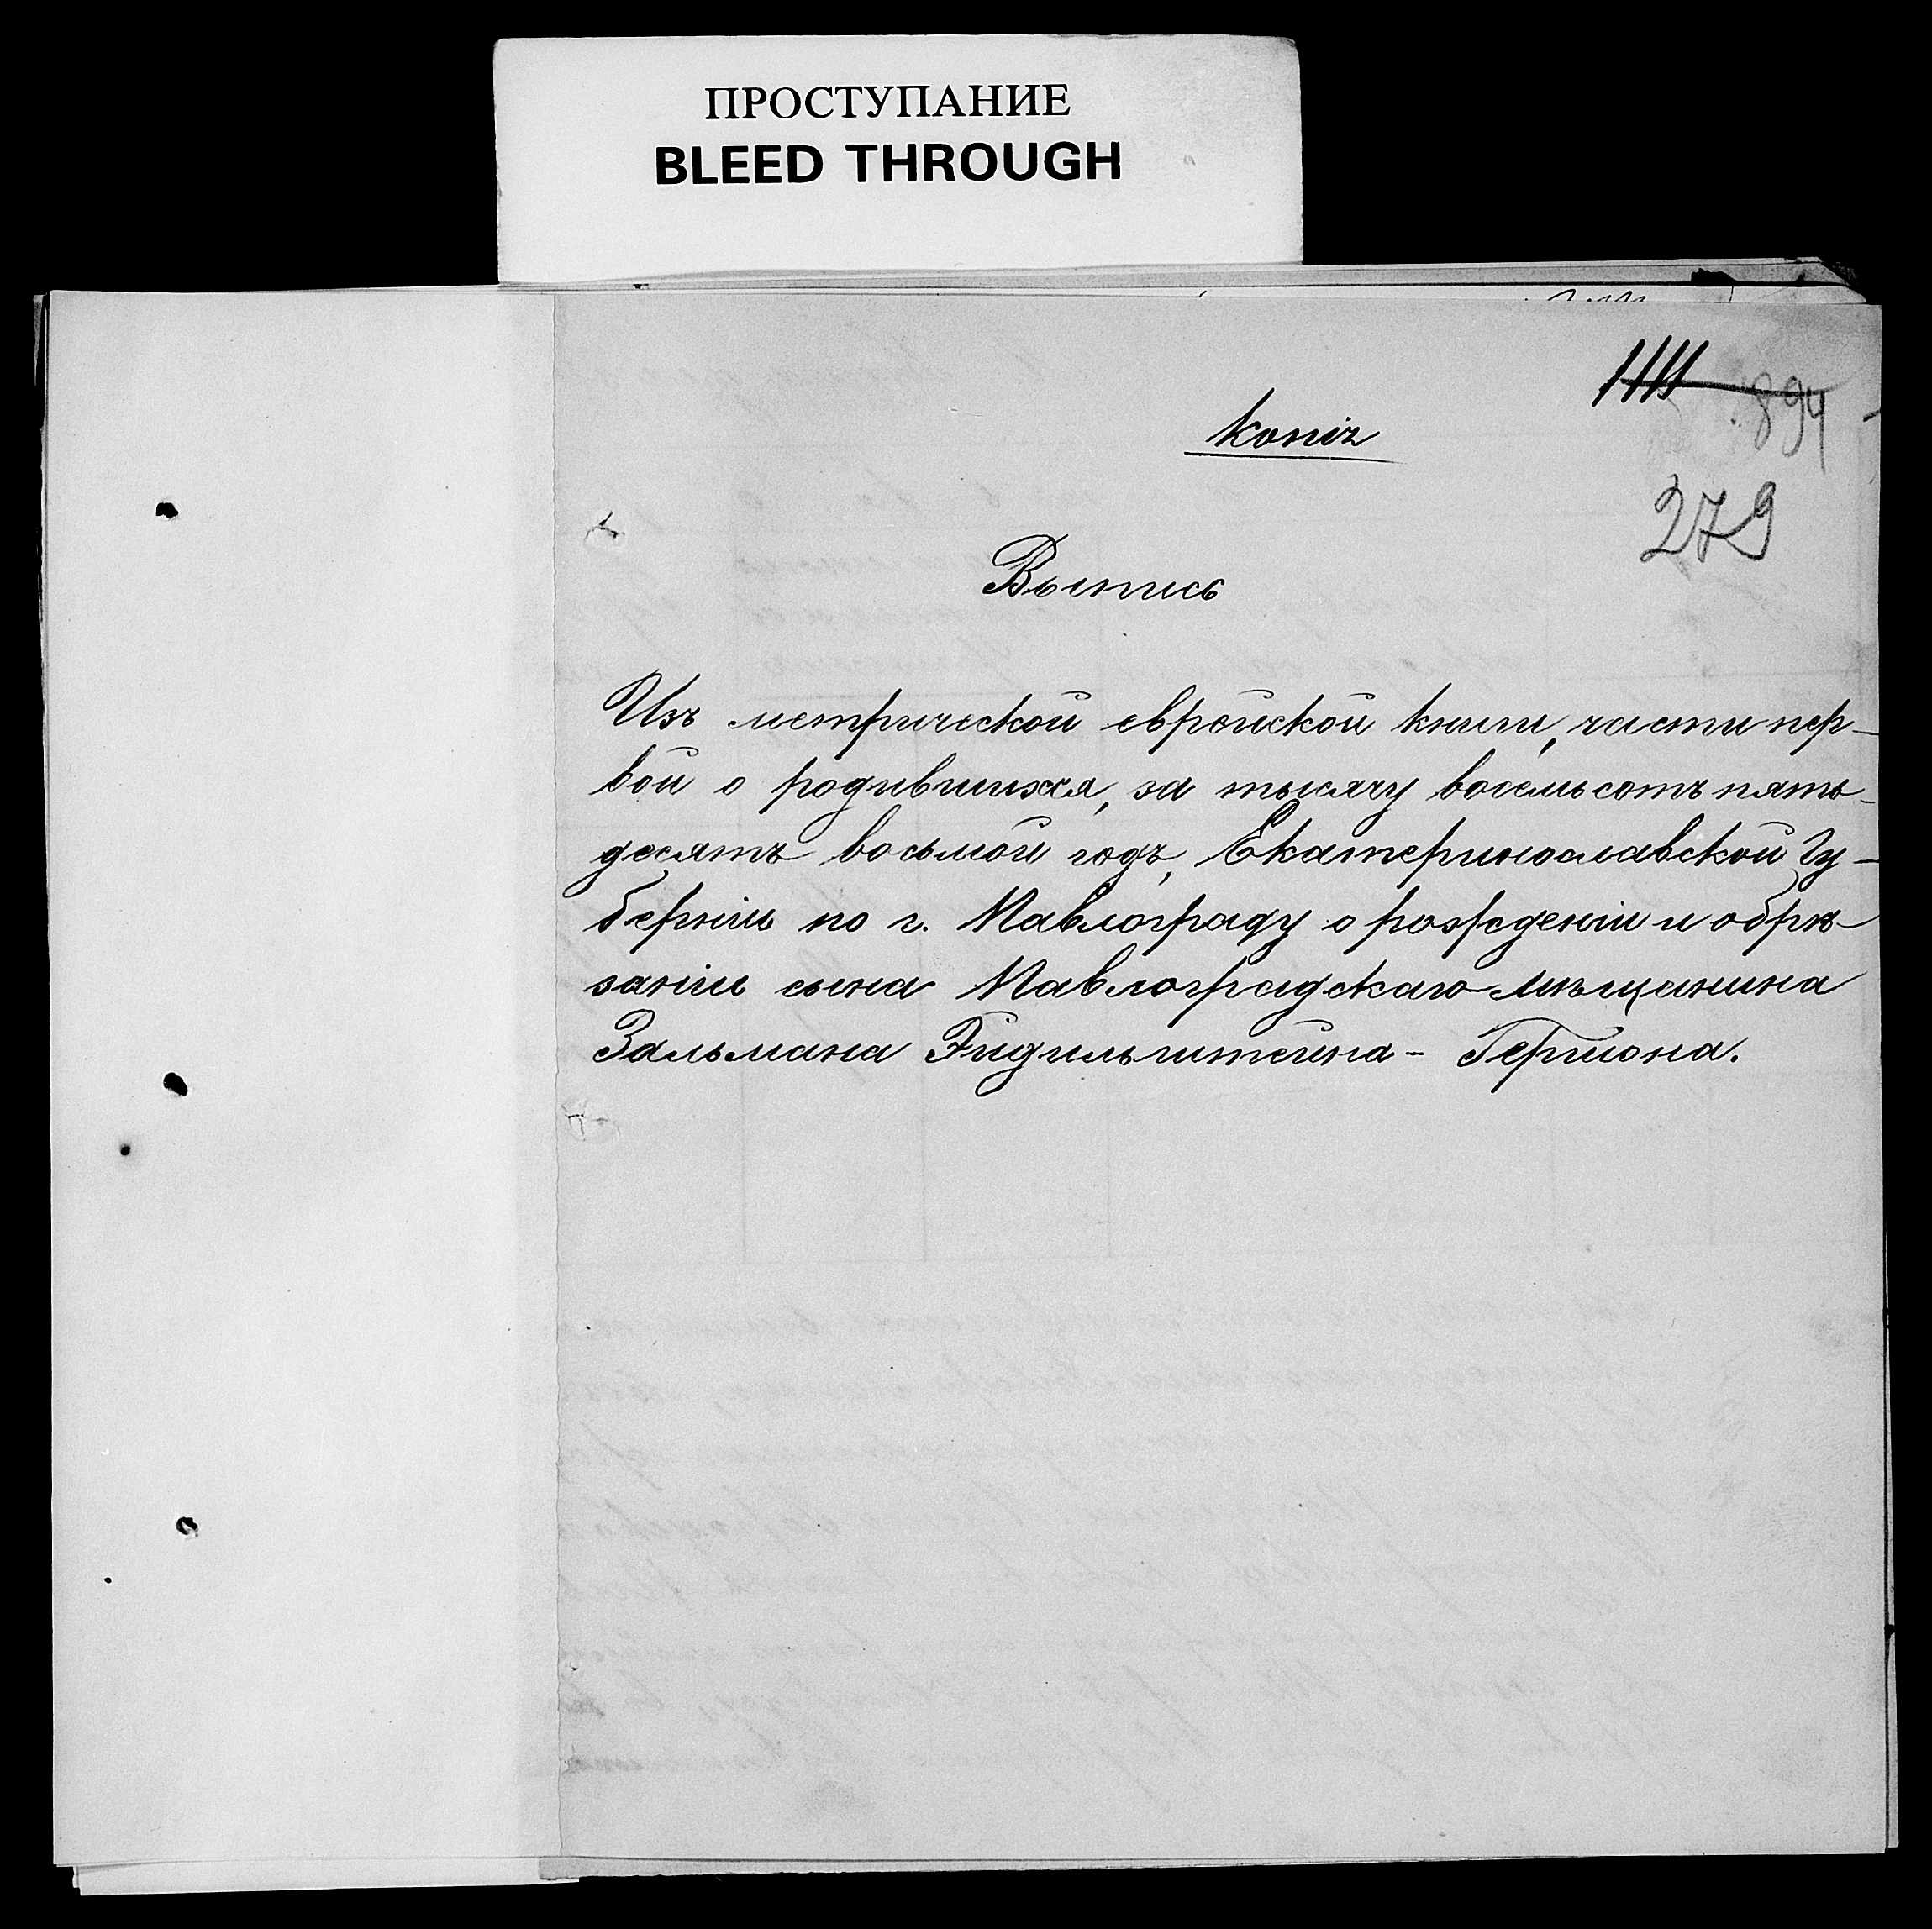 ПРОСТУПАНИЕ
BLEED THROUGH
1111
894
Копія
279
Выпись
Изъ метрической еврейской книги, части пер-
вой о родившихся, за тысячу восемьсотъ пять-
десятъ восьмой годъ, Екатеринославской Гу-
берніи по г. Павлограду о рожденіи и обрѣ-
заніи сына Павлоградскаго мѣщанина
Зальмана Эидильштейна - Гершона.